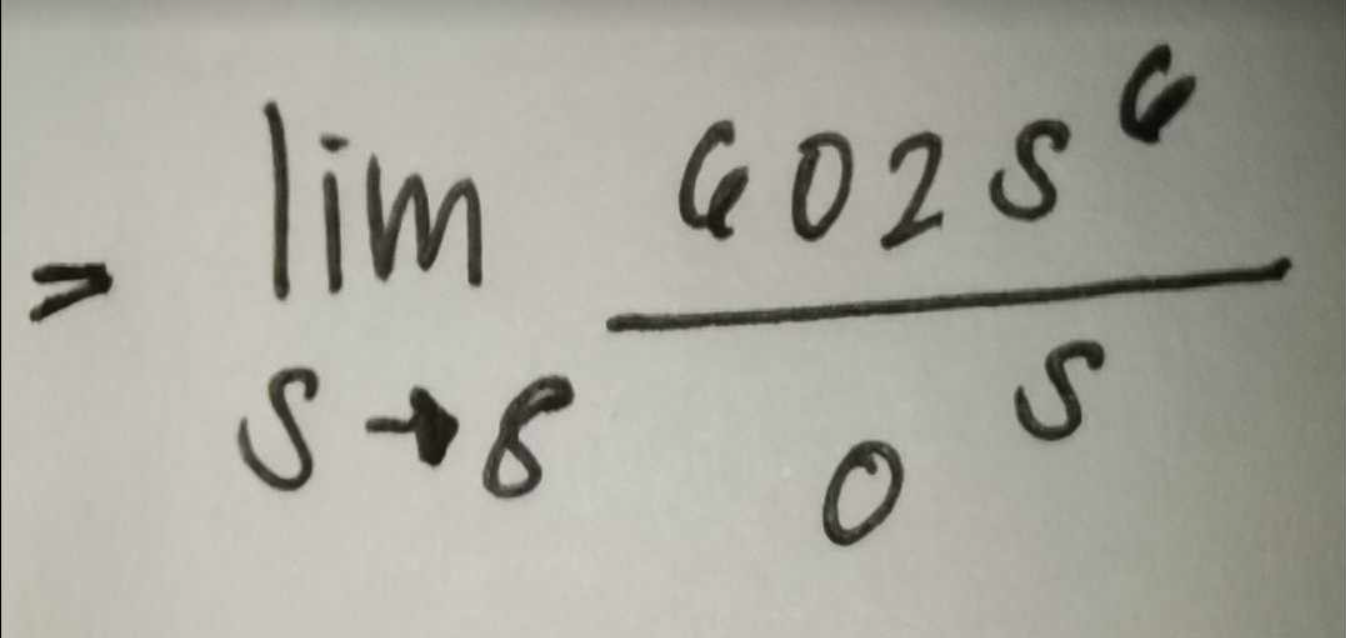 = lim_{s→8} \frac{602s^6}{0^s}